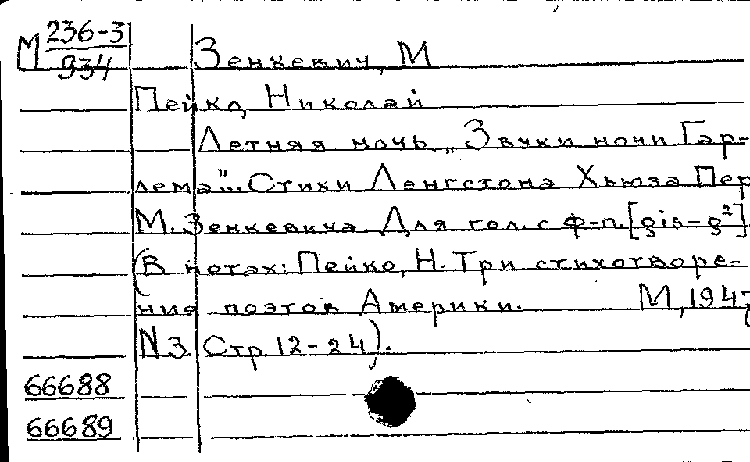 М 236-3
934
Зенкевич, М
Пейко, Николай
Летняя ночь „Звуки ночи Гар-
лема". Стихи Ленгстона Хьюза Пер
М. Зенкевича Для гол. с ф-п. [gis-g²].
(В нотах: Пейко, Н. Три стихотворе-
ния поэтов Америки. М, 1947
N3. Стр 12-24).
66688
66689